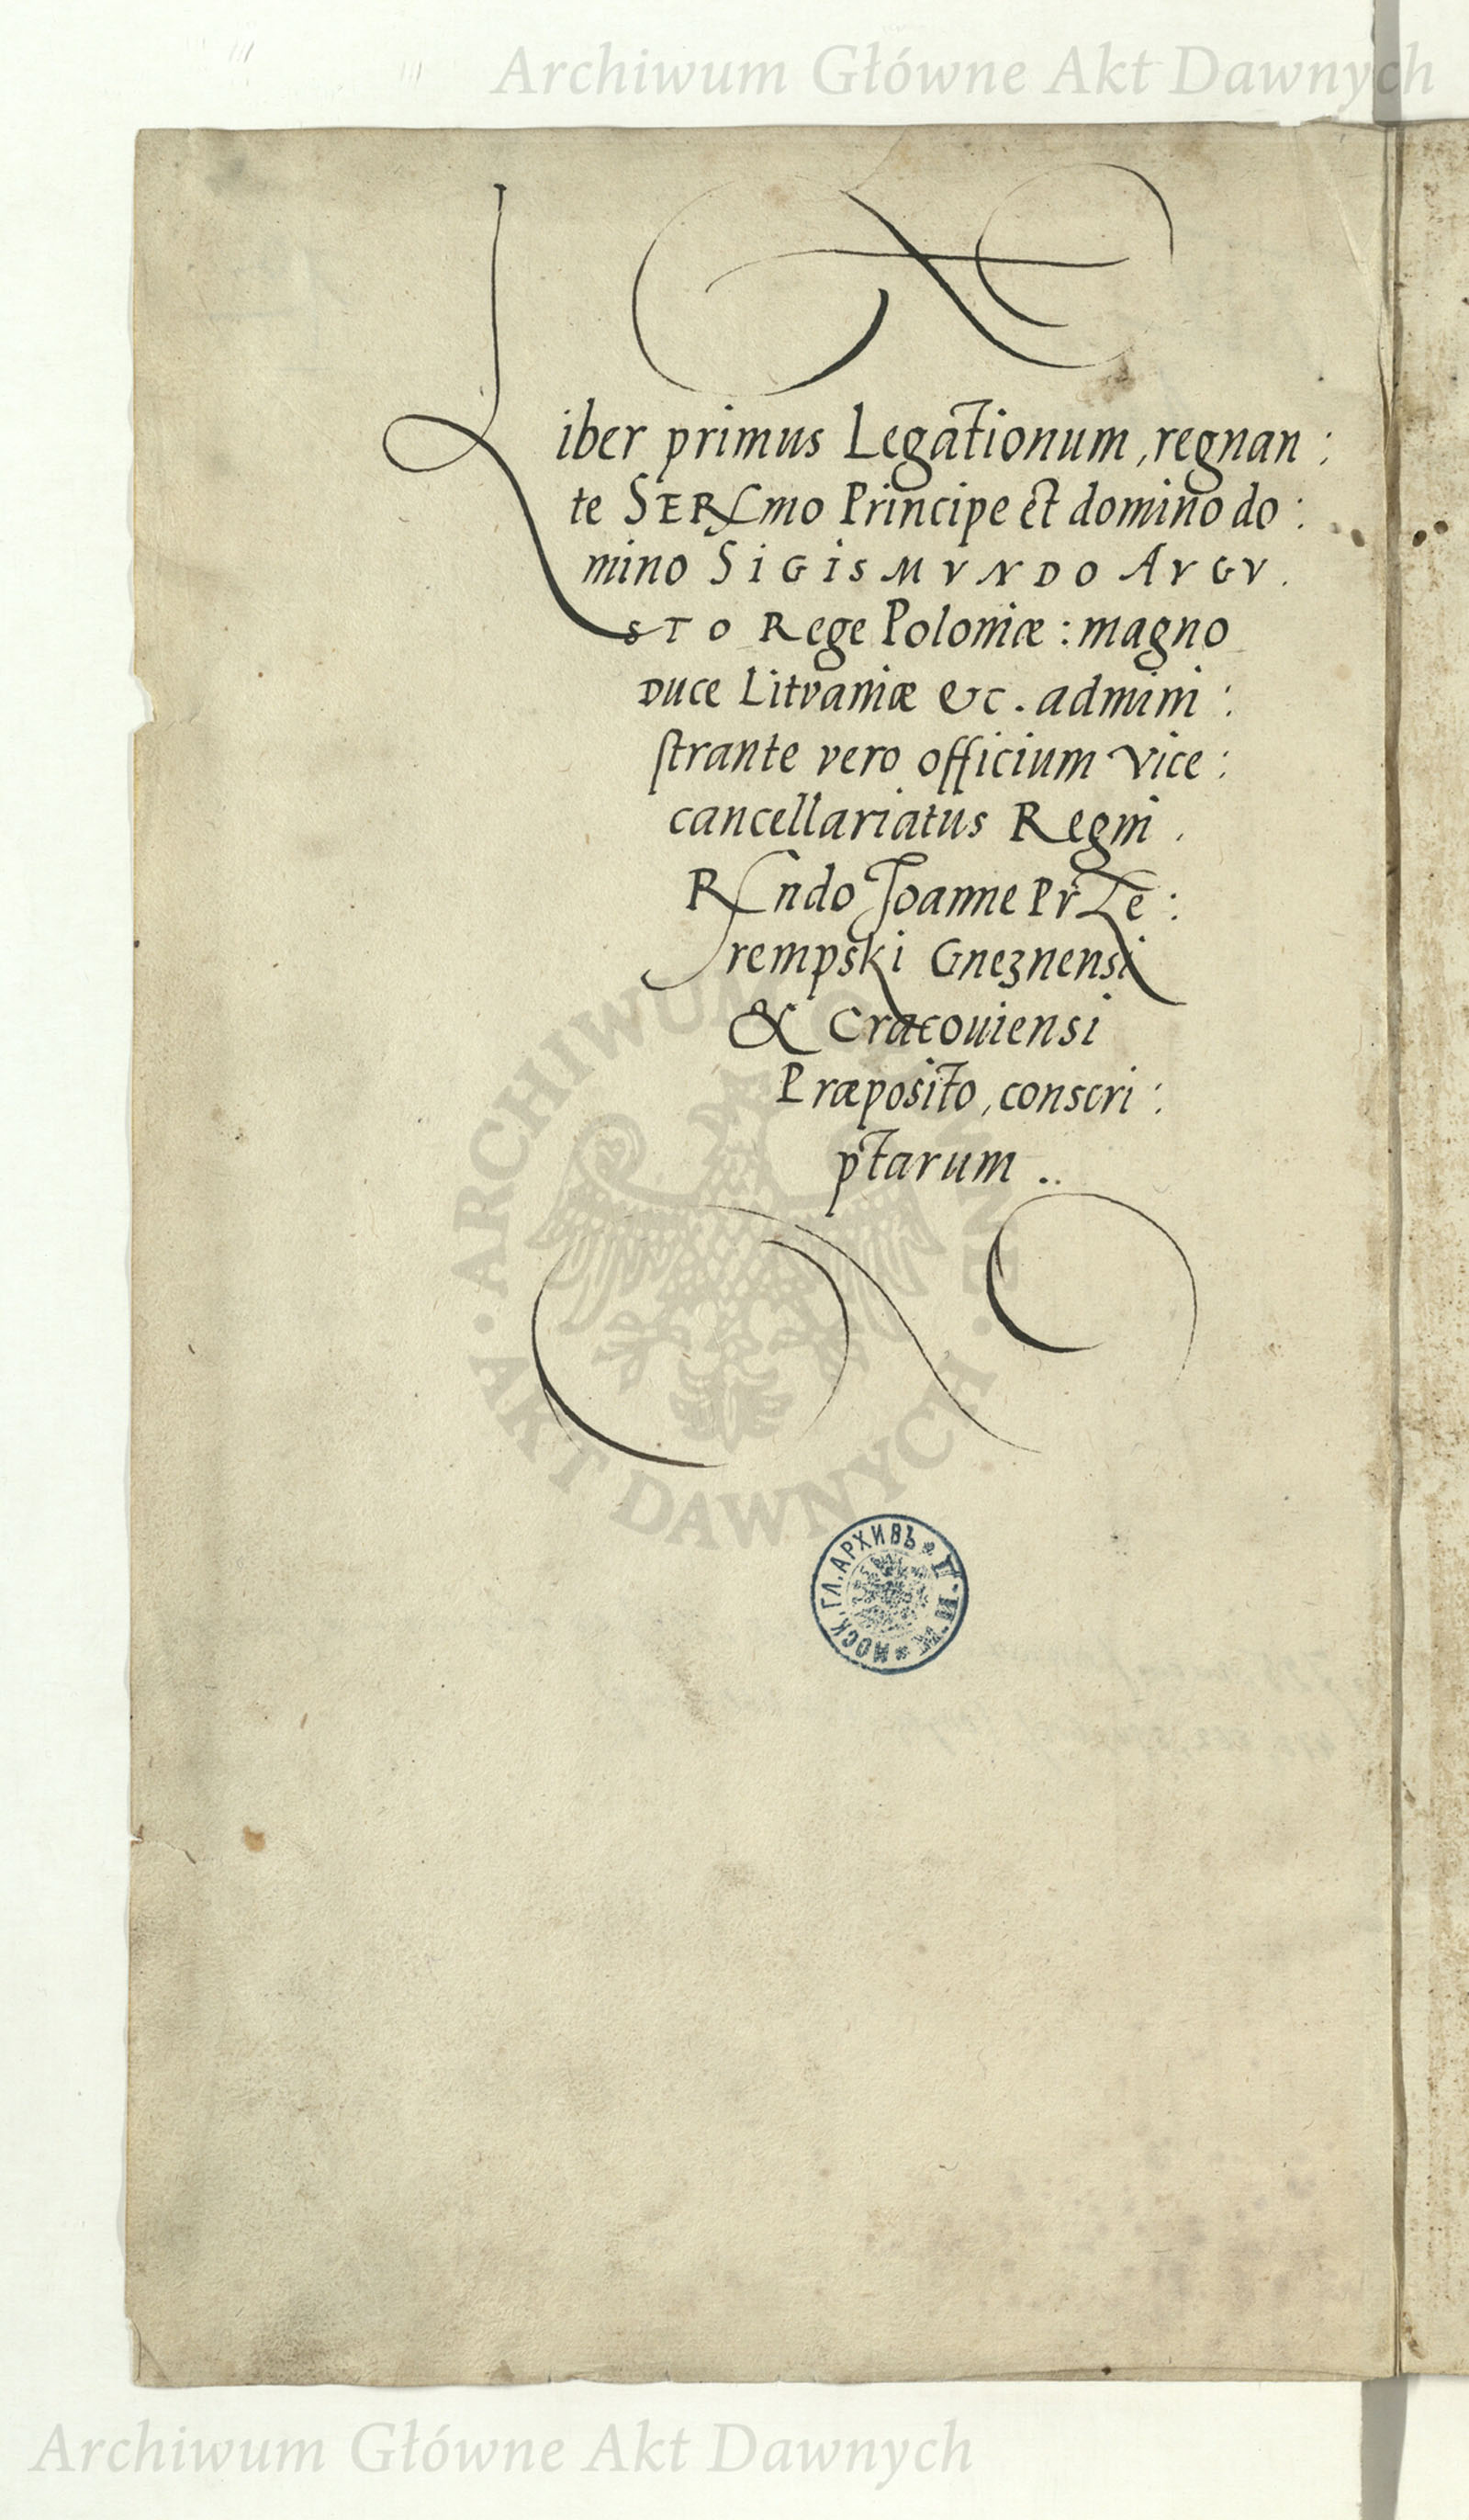 Archiwum Główne Akt Dawnych
Liber primus Legationum, regnan:
te SERmo Principe et domino do:
mino SiGiSMVNDO AVGV.
STO Rege Poloniæ: magno
Duce Litvaniæ &c. admini:
strante vero officium vice:
cancellariatus Regni.
Rndo Joanne Prze:
rempski Gneznensi
& Cracouiensi
Præposito, conscri:
ptarum..
ARCHIWUM GŁÓWNE
AKT DAWNYCH
МОСК. ГЛ. АРХИВЪ
М. И. Д.
Archiwum Główne Akt Dawnych